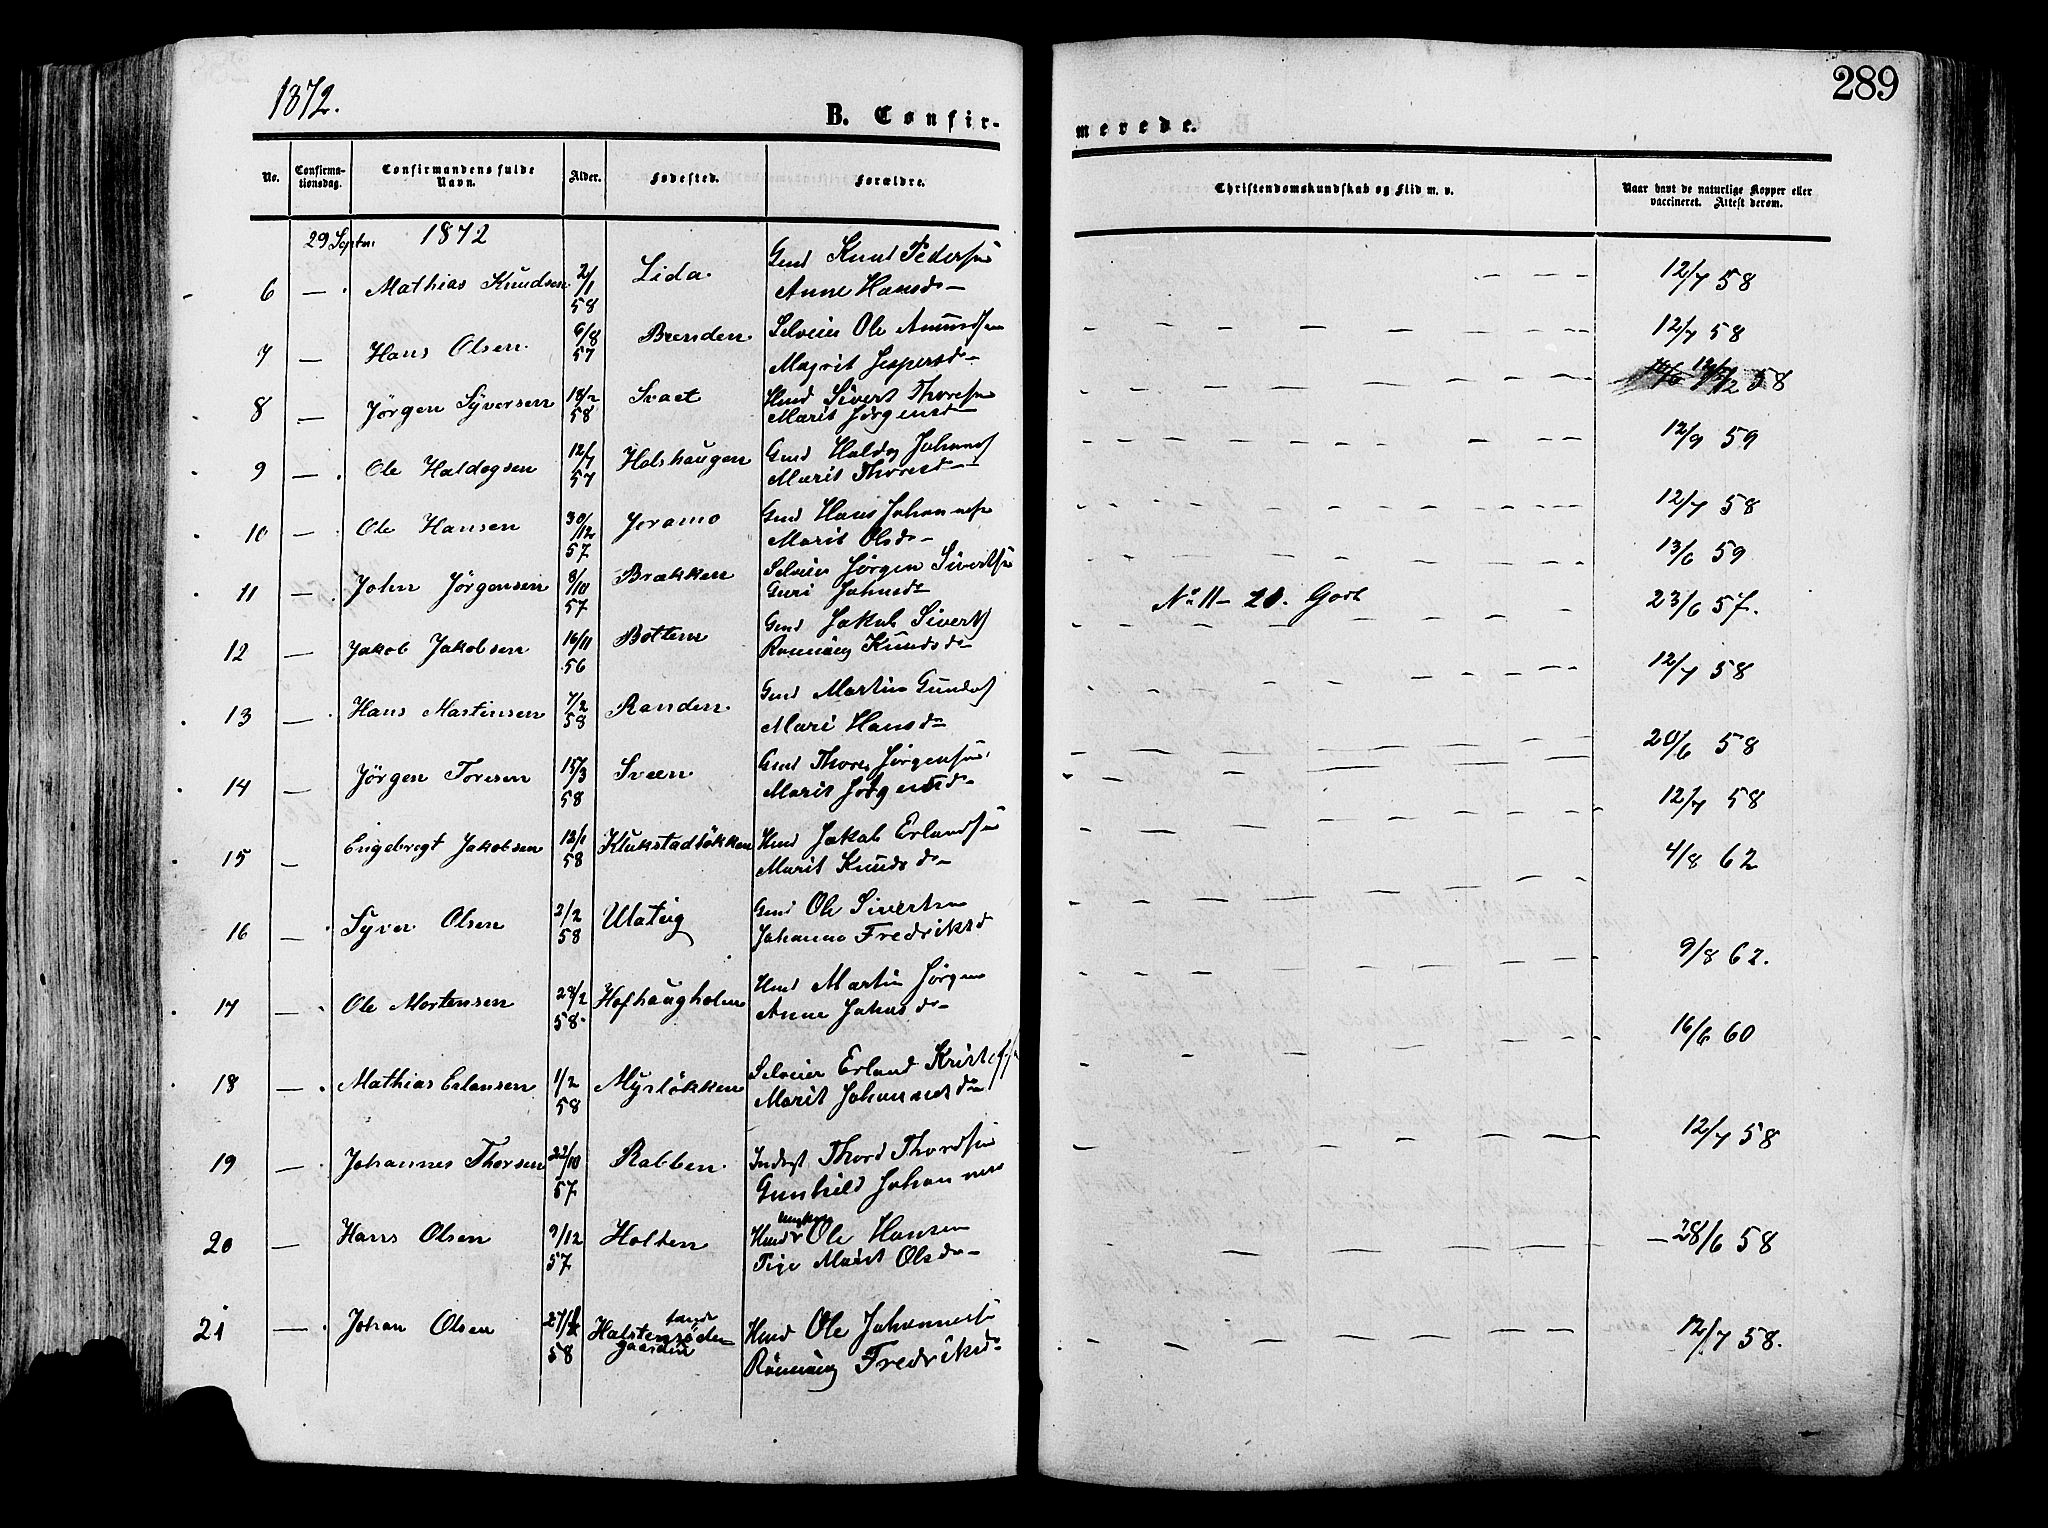 1872.
289
B. Confir-
merede.
No.
Confirma-
tionsdag.
Confirmandens fulde
Navn.
Alder.
Fødested.
Forældre.
Christendomskundskab og Flid m. v.
Naar havt de naturlige Kopper eller
vaccineret. Attest derom.
29 Septm 1872
6 — Mathias Knudsen 2/1 58 Lida. Gmd Knut Pedersen 12/7 58
Anne Hansd
7 — Hans Olsen 6/8 57 Brenden Selveier Ole Amundsen 12/7 58
Magrit Jespersd
8 — Jörgen Syversen 18/2 58 Svaet Hmd Sivert Thoresen 58
Marit Jörgensd
9 — Ole Haldogsen 12/7 57 Holshaugen Gmd Haldog Johans 12/9 59
Marit Thoresd
10 — Ole Hansen 30/12 57 Joramo Gmd Hans Johannes 12/7 58
Marit Olsd
11 — John Jörgensen 8/10 57 Brækken Selveier Jörgen Sivertsen 13/6 59
Guri Johnsd
No 11 - 20. Godt
12 — Jakob Jakobsen 16/11 56 Botten Gmd Jakob Siverts 23/6 57.
Rönnaug Knudsd
13 — Hans Martinsen 7/2 58 Randen Gmd Martin 12/7 58
Mari Hansd
14 — Jörgen Toresen 15/3 58 Sveen Gmd Thores Jörgensen 20/6 58
Marit Jörgensd
15 — Engebregt Jakobsen 13/1 58 Klukstadlökken Hmd Jakob Erlandsen 12/7 58
Marit Knudsd
16 — Syver Olsen 2/2 58 Ulateig Gmd Ole Sivertsen 4/8 62
Johanne Fredriksd
17 — Ole Mortensen 28/2 58. Hofhaugholen Hmd Martin Jörgen 9/8 62.
Anne Johnsd
18 — Mathias Erlansen 1/2 58 Myrlökken Selveier Erland Kristoffsen 16/6 60
Marit Johannesd
19 — Johannes Thorsen 22/10 57 Rabben Inderst Thord Thordsen 12/7 58
Gunhild Johannes
20 — Hans Olsen 9/12 57 Holten Ole Hansen 28/6 58
Pige Marit Olsd
21 — Johan Olsen 58 Hmd Ole Johannesen 12/7 58.
Rönnaug Fredriksd